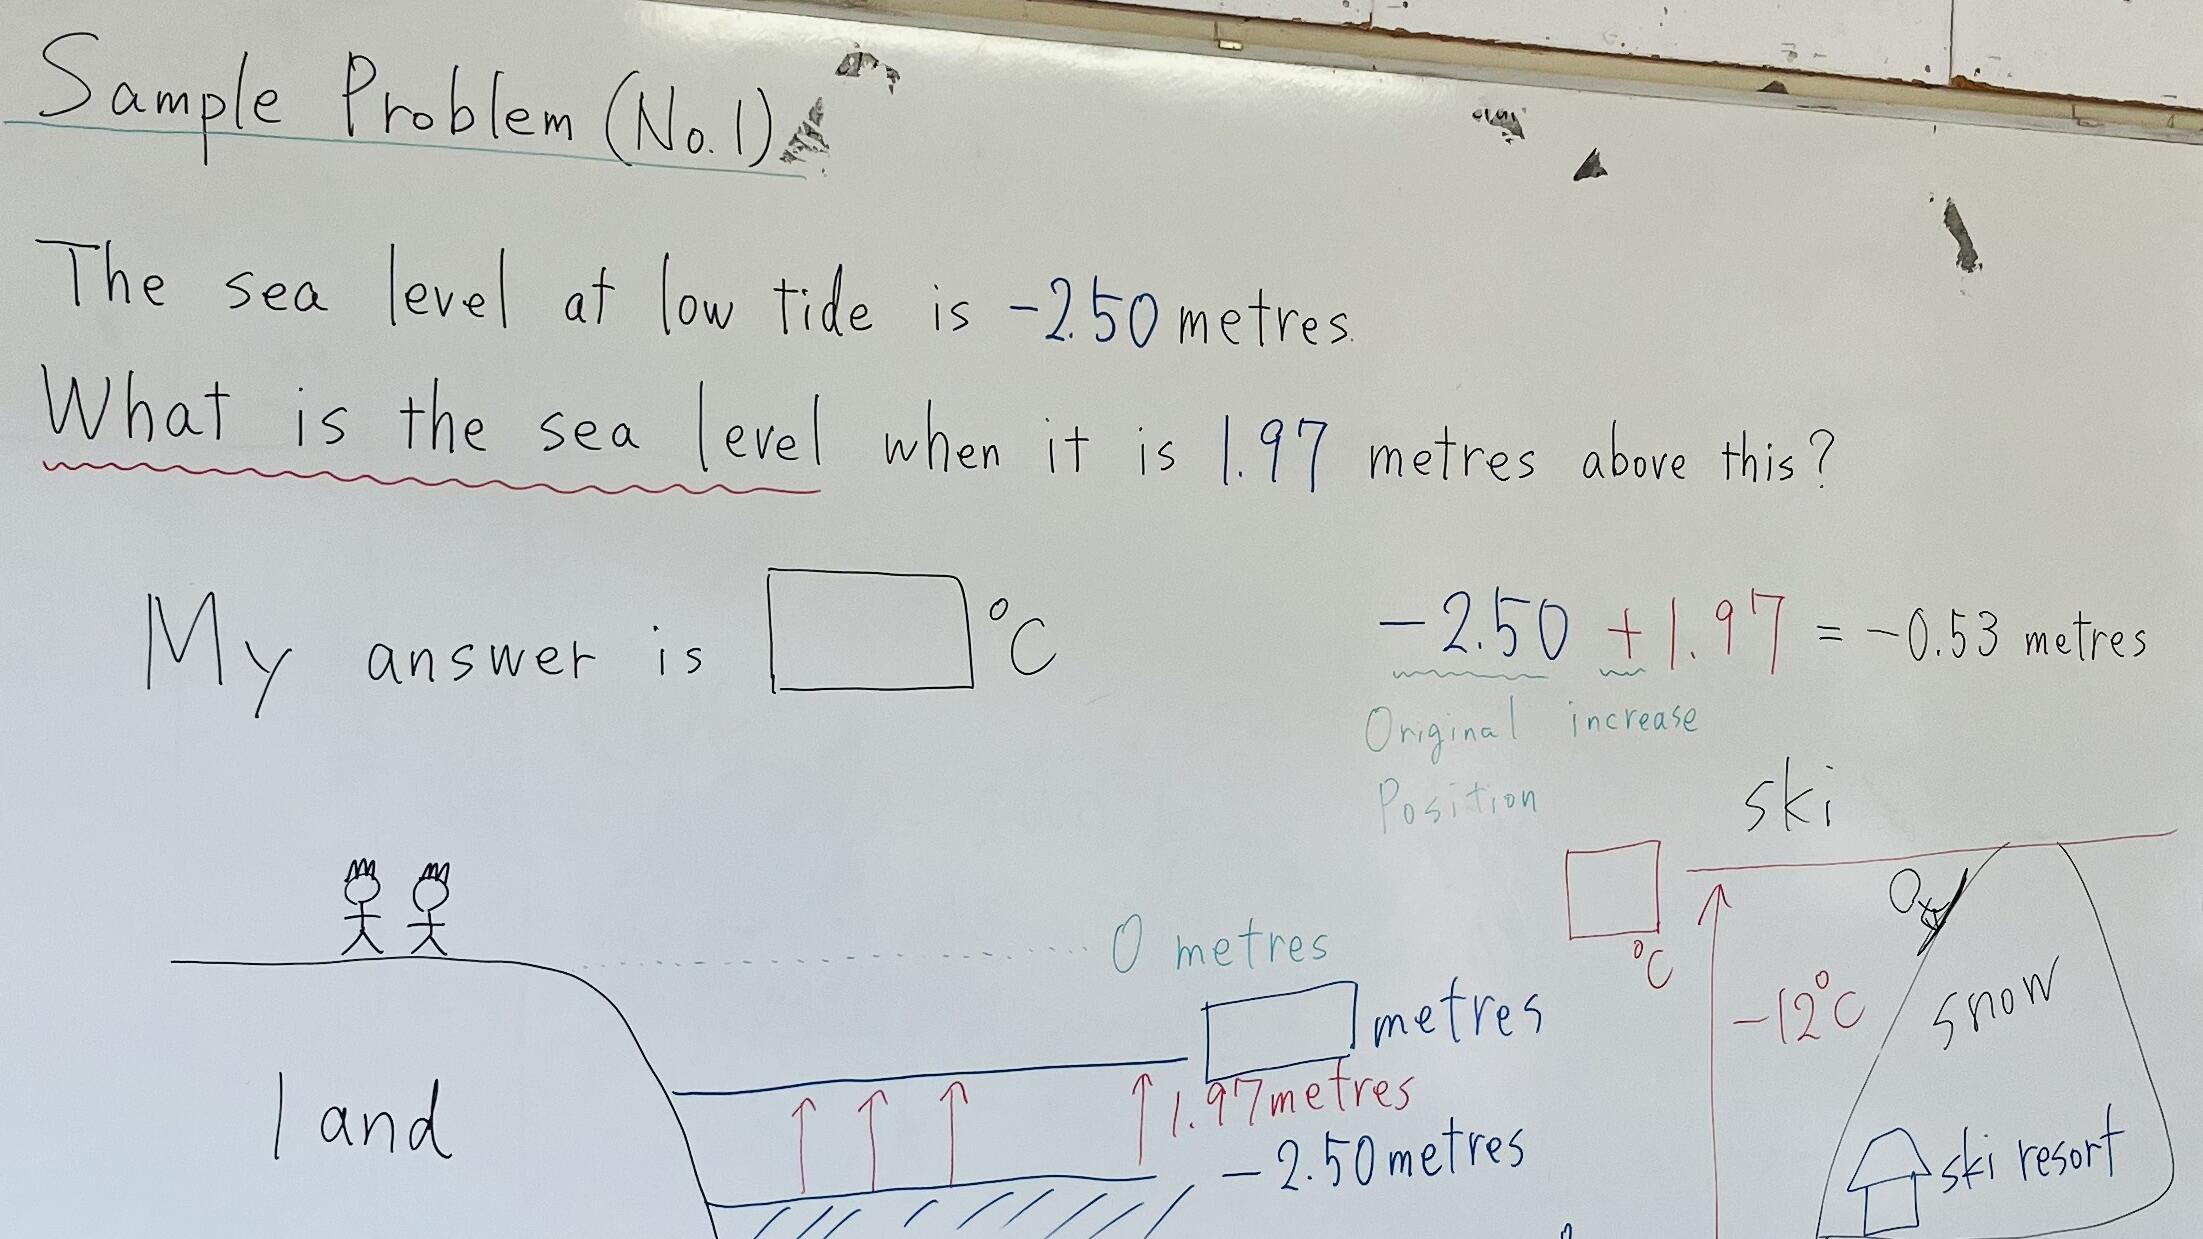 Sample Problem (No.1)
The sea level at low tide is -2.50 metres.
What is the sea level when it is 1.97 metres above this?
My answer is °C
-2.50 + 1.97 = -0.53 metres
Original increase
Position
ski
0 metres
°C
metres
-12°C
snow
1.97 metres
land
-2.50 metres
ski resort